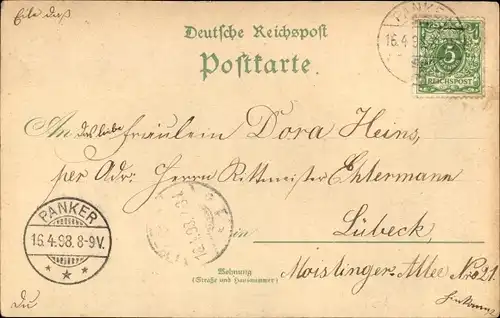 Deutsche Reichspost
Postkarte
PANKER
16.4.98
5
REICHSPOST
An das liebe Fräulein Dora Heins,
per Adr: Herrn Rittmeister Ehlermann
Lübeck,
PANKER
16.4.98. 8-9V.
Wohnung
(Straße und Hausnummer)
Moislinger-Allee No 21.